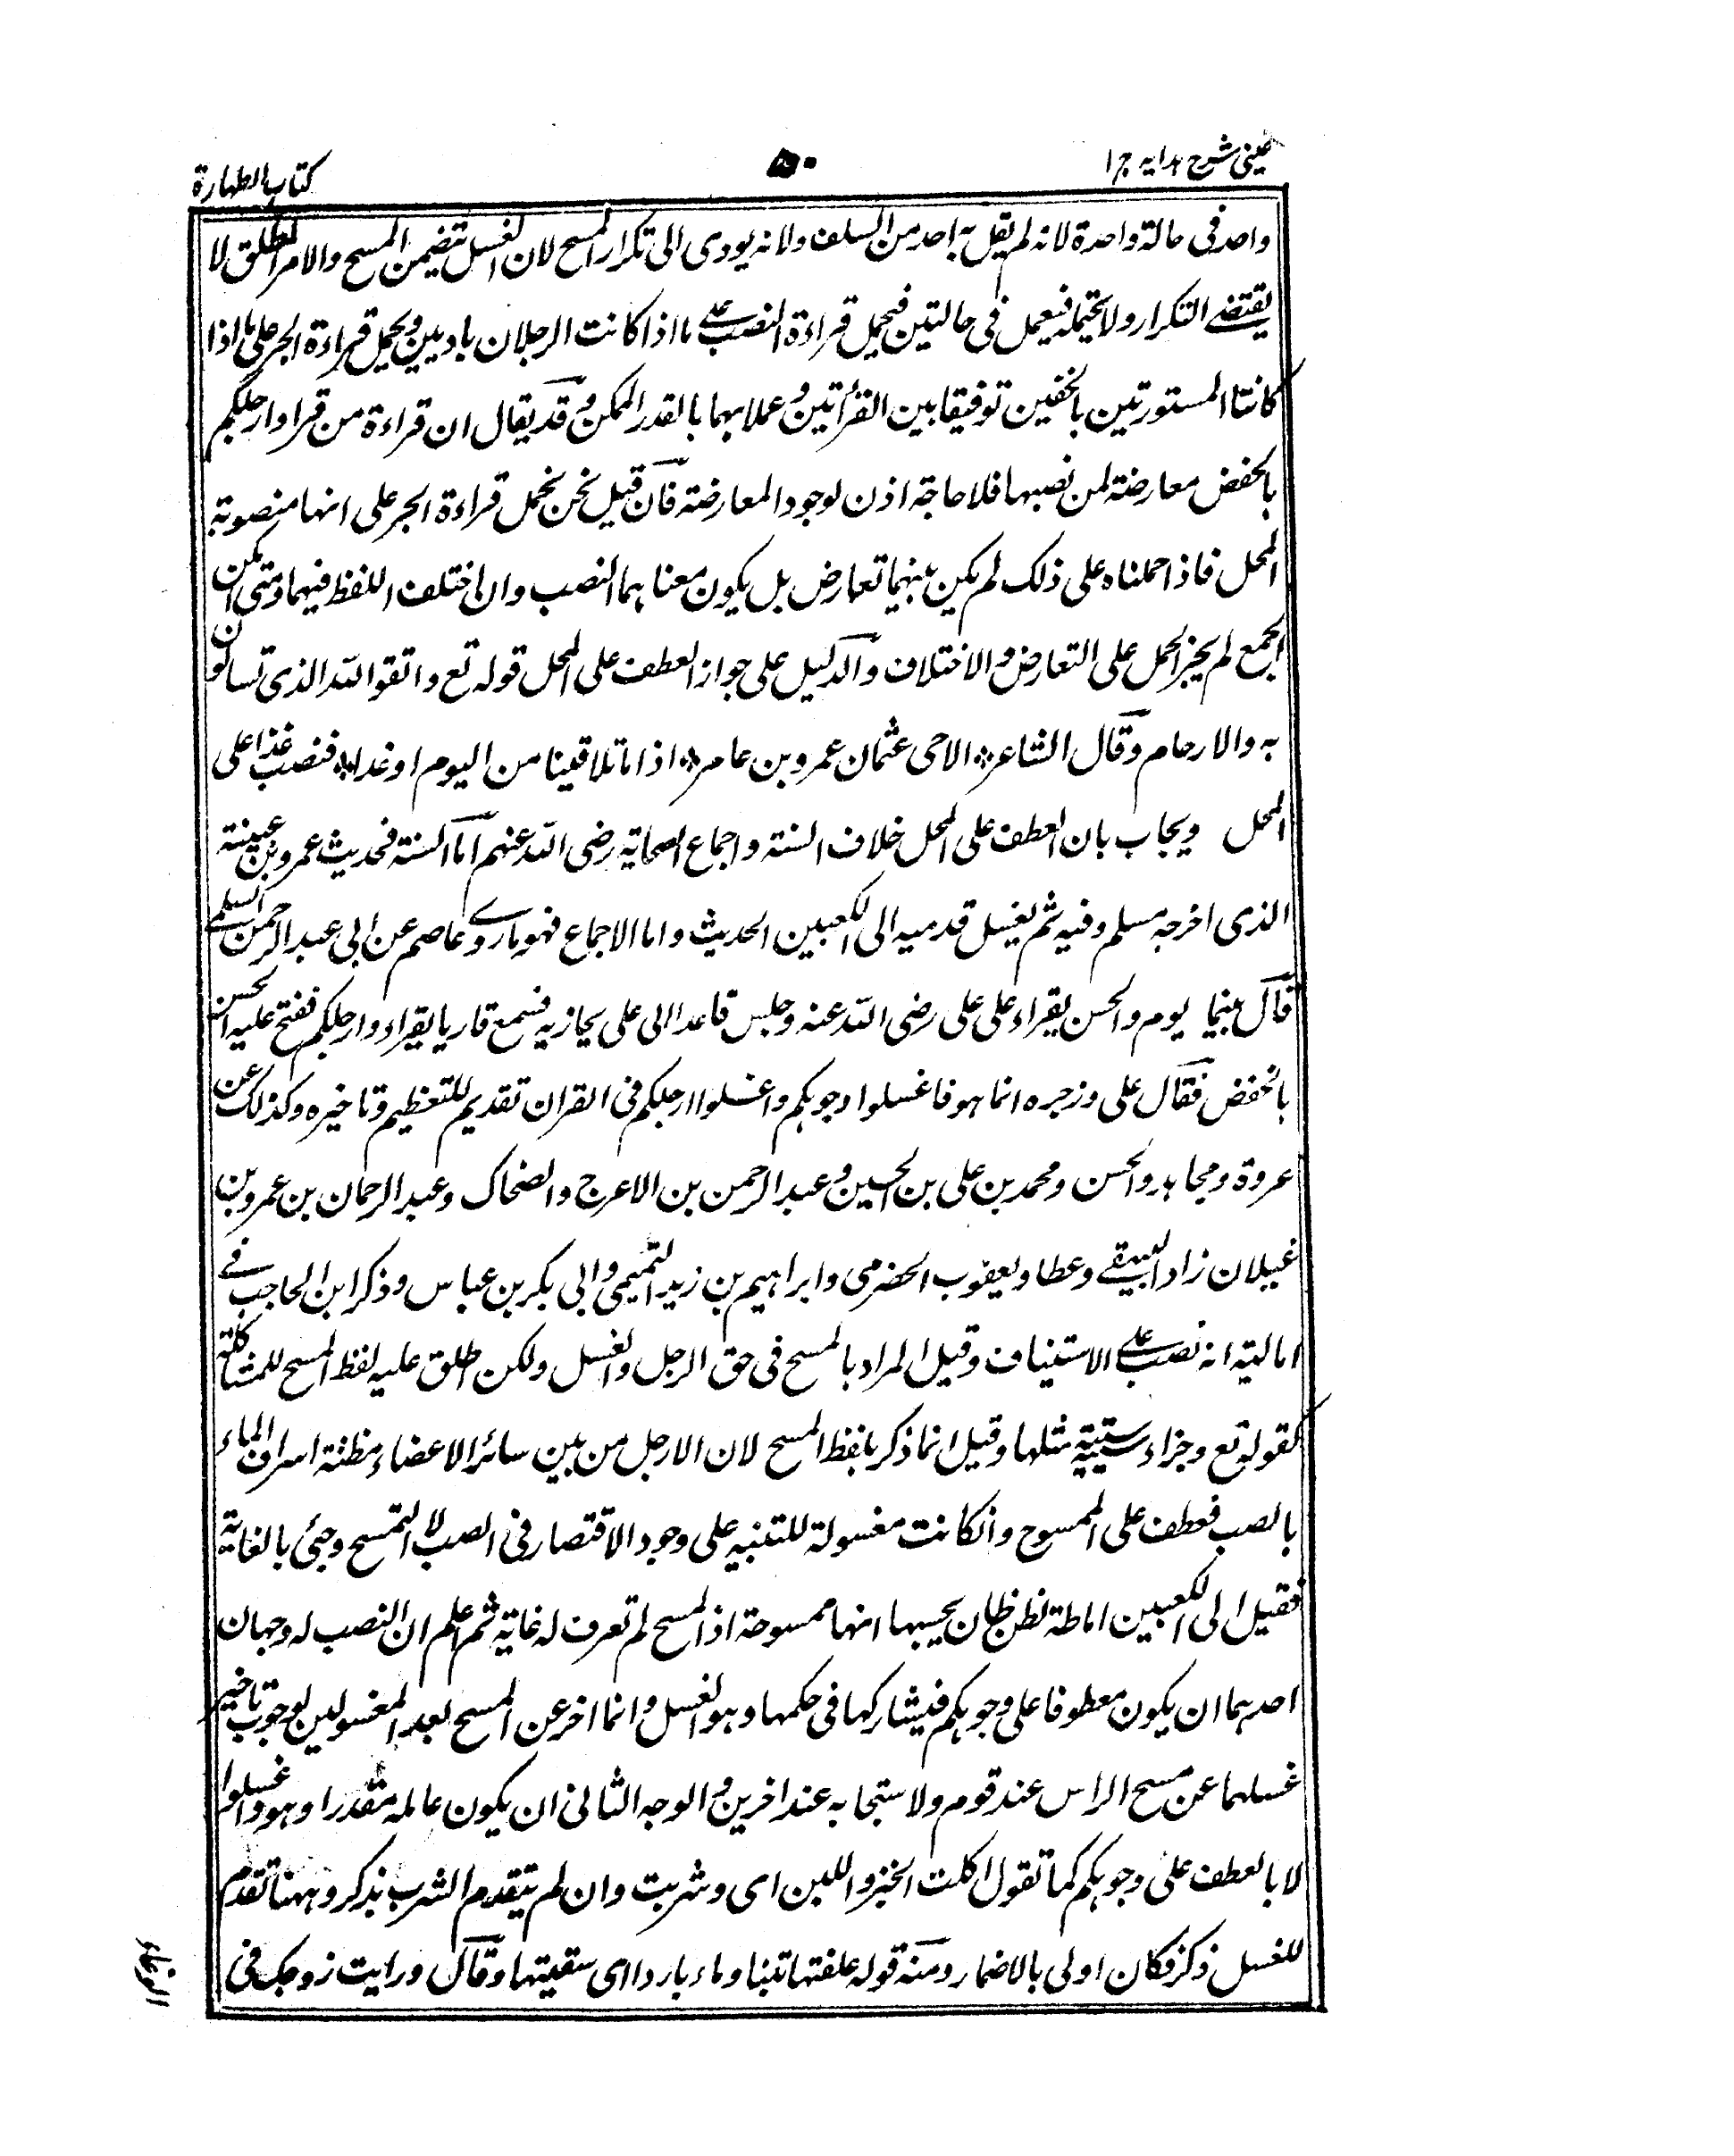 عینی شرح ہدایہ ج ۱
۵۰
کتاب الطہارة
واحد فی حالة واحدة لانہ لم یقل بہ احد من السلف ولانہ یودی الی تکرار المسح لان الغسل یتضمن المسح والامر المطلق لا
یقتضے التکرار ولا یحتملہ فیعمل فی حالتین فیحمل قراءة النصب علے ما اذا کانت الرجلان بادیین ویحمل قراءة الجر علی ما اذا
کانتا المستورتین بالخفین توفیقا بین القرأتین وعملا بہما بالقدر الممکن وقد یقال ان قراءة من قرا وارجلکم
بالخفض معارضة لمن نصبہا فلا حاجة اذن لوجود المعارضة فان قیل نحن نحمل قراءة الجر علی انہا منصوبة
المحل فاذا حملناہ علی ذلک لم یکن بینہما تعارض بل یکون معناہما النصب وان اختلف اللفظ فیہما ومتی امکن
الجمع لم یجز الحمل علی التعارض والاختلاف والدلیل علی جواز العطف علی المحل قولہ تع واتقوا اللہ الذی تسالون
بہ والارحام وقال الشاعر ؞ الاحی عثمان عمرو بن عامر ؞ اذا ما تلاقینا من الیوم او غدا ؞ فنصب غدا علی
المحل ویجاب بان العطف علی المحل خلاف السنة واجماع الصحابة رضی اللہ عنہم اما السنة فحدیث عمرو بن عبینة
الذی اخرجہ مسلم وفیہ ثم یغسل قدمیہ الی الکعبین الحدیث واما الاجماع فہو ما روے عاصم عن ابی عبد الرحمن السلمے
قال بینما یوم والحسن یقراء علی علی رضی اللہ عنہ وجلس قاعدا الی علی یحازیہ فسمع قاریا یقراء وارجلکم ففتح علیہ الحسن
بالخفض فقال علی وزجرہ انما ہو فاغسلوا وجوہکم واغسلوا ارجلکم فی القران تقدیم للتعظیم وتاخیرہ وکذلک عن
عروة ومجاہد والحسن ومحمد بن علی بن الحسین وعبد الرحمن بن الاعرج والضحاک وعبد الرحمان بن عمرو بن
غیلان زاد البیہقے وعطا ویعقوب الحضرمی وابراہیم بن زید التمیمی وابی بکر بن عباس وذکر ابن الحاجب فے
امالیتہ انہ نصب علے الاستیناف وقیل المراد بالمسح فی حق الرجل والغسل ولکن اطلق علیہ لفظ المسح للمشاکلة
کقولہ تع وجزاء سیئیة مثلہا وقیل انما ذکر بلفظ المسح لان الارجل من بین سائر الاعضاء مظنة اسراف الماء
بالصب فعطف علی الممسوح وانکانت مغسولة للتنبیہ علی وجود الاقتصار فی الصب لا التمسح وجئ بالغایة
فقیل الی الکعبین اماطة لظن ظان یحسبہا انہا ممسوحة اذ المسح لم تعرف لہ غایة ثم اعلم ان النصب لہ وجہان
احدہما ان یکون معطوفا علی وجوہکم فیشارکہا فی حکمہا وہو الغسل وانما اخر عن المسح بعد المغسولین لوجوب تاخیر
غسلہما عن مسح الراس عند قوم ولاستحبابہ عند اخرین والوجہ الثانی ان یکون عاملہ مقدرا وہو واغسلوا
لا بالعطف علی وجوہکم کما تقول اکلت الخبز واللبن ای وشربت وان لم یتقدم الشرب بذکر وہہنا تقدم
للغسل ذکر فکان اولی بالاضمار ومنہ قولہ علفتہا تبنا وماء باردا ای سقیتہا وقال ورایت زوجک فی
الوغاء